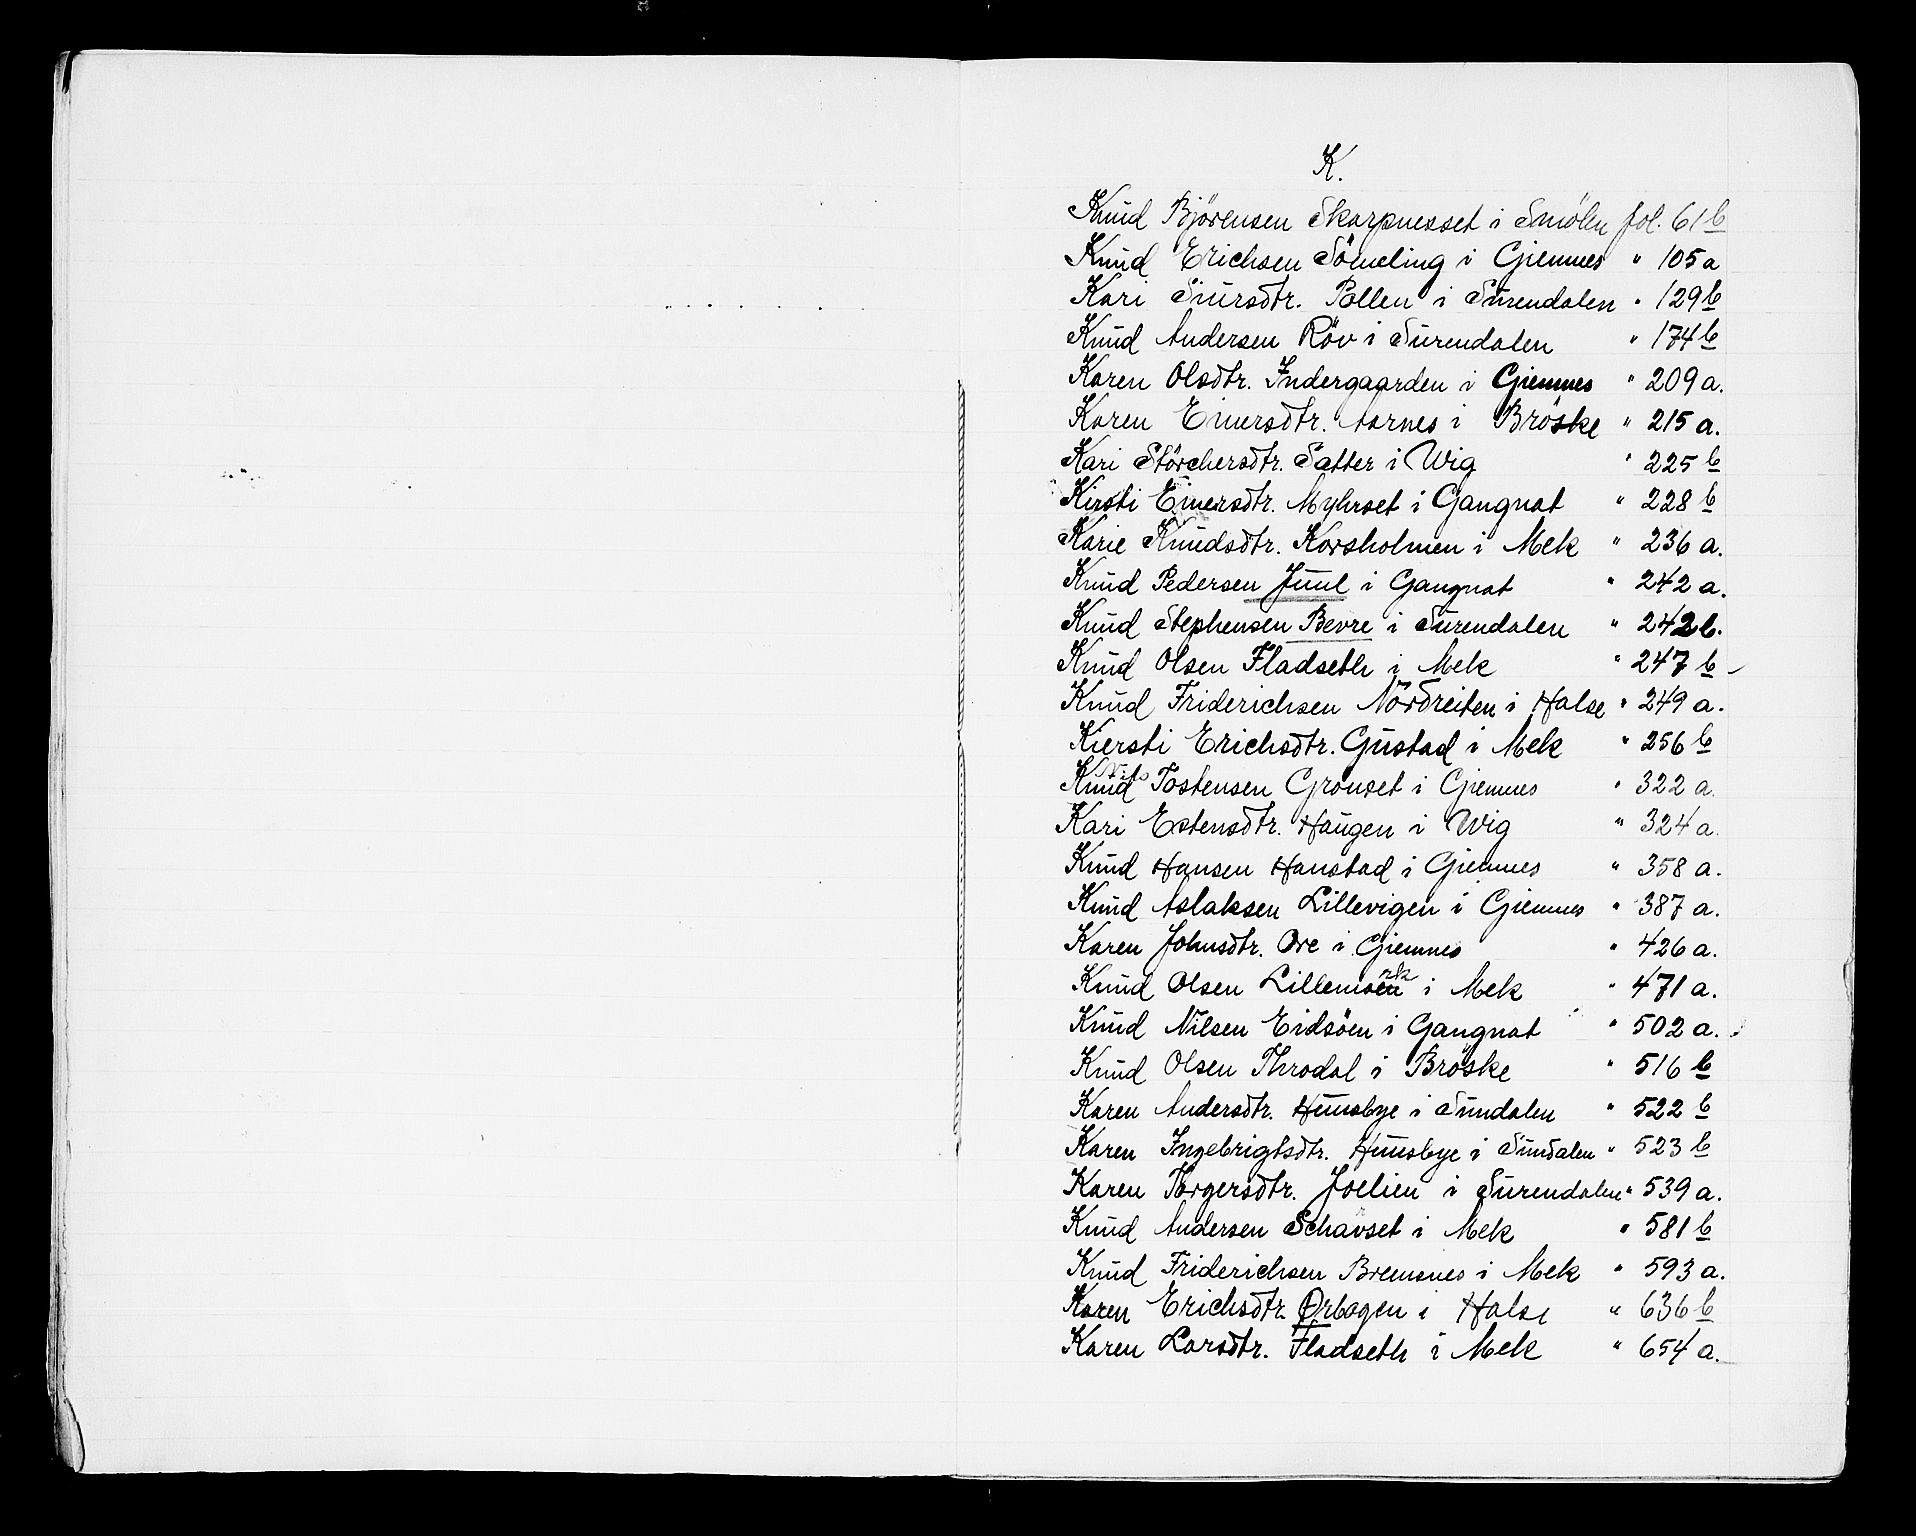 K.
Knud Björensen Skarpnesset i Smölen fol. 61 b
Knud Erichsen Sömeling i Gjemnes " 105 a
Kari Siursdtr. Pollen i Surendalen " 129 b
Knud Andersen Röv i Surendalen " 174 b
Karen Olsdtr. Indergaarden i Gjemnes " 209 a.
Karen Einersdtr. Aarnes i Bröske " 215 a.
Kari Störchersdtr. Satter i Wig " 225 b
Kirsti Einersdtr. Myhrset i Gangnat " 228 b
Karie Knudsdtr. Korsholmen i Mek " 236 a.
Knud Pedersen Juul i Gangnat " 242 a.
Knud Stephensen Bevre i Surendalen " 242 b.
Knud Olsen Fladseth i Mek " 247 b
Knud Friderichsen Nördreiten i Halse " 249 a.
Kiersti Erichsdtr. Gustad i Mek " 256 b
Knud Nils Tostensen Grönset i Gjemnes " 322 a.
Kari Estensdtr. Haugen i Wig " 324 a.
Knud Hansen Hanstad i Gjemnes " 358 a.
Knud Aslaksen Lillevigen i Gjemnes " 387 a.
Karen Johnsdtr. Ore i Gjemnes " 426 a.
Knud Olsen i Mek " 471 a.
Knud Nilsen Eidsöen i Gangnat " 502 a.
Knud Olsen Throdal i Bröske " 516 b
Karen Andersdtr. Huusbye i Sundalen " 522 b
Karen Ingebrigtsdtr. Huusbye i Sundalen " 523 b
Karen Torgersdtr. Joelien i Surendalen " 539 a.
Knud Andersen Scharset i Mek " 581 b
Knud Friderichsen Bremsnes i Mek " 593 a.
Karen Erichsdtr. Ørbogen i Halse " 636 b
Karen Larsdtr. Fladseth i Mek " 654 a.